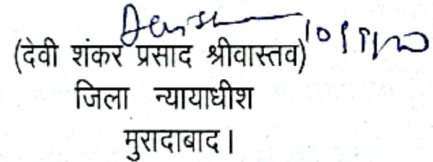 (देवी शंकर प्रसाद श्रीवास्तव)
जिला न्यायाधीश
मुरादाबाद।